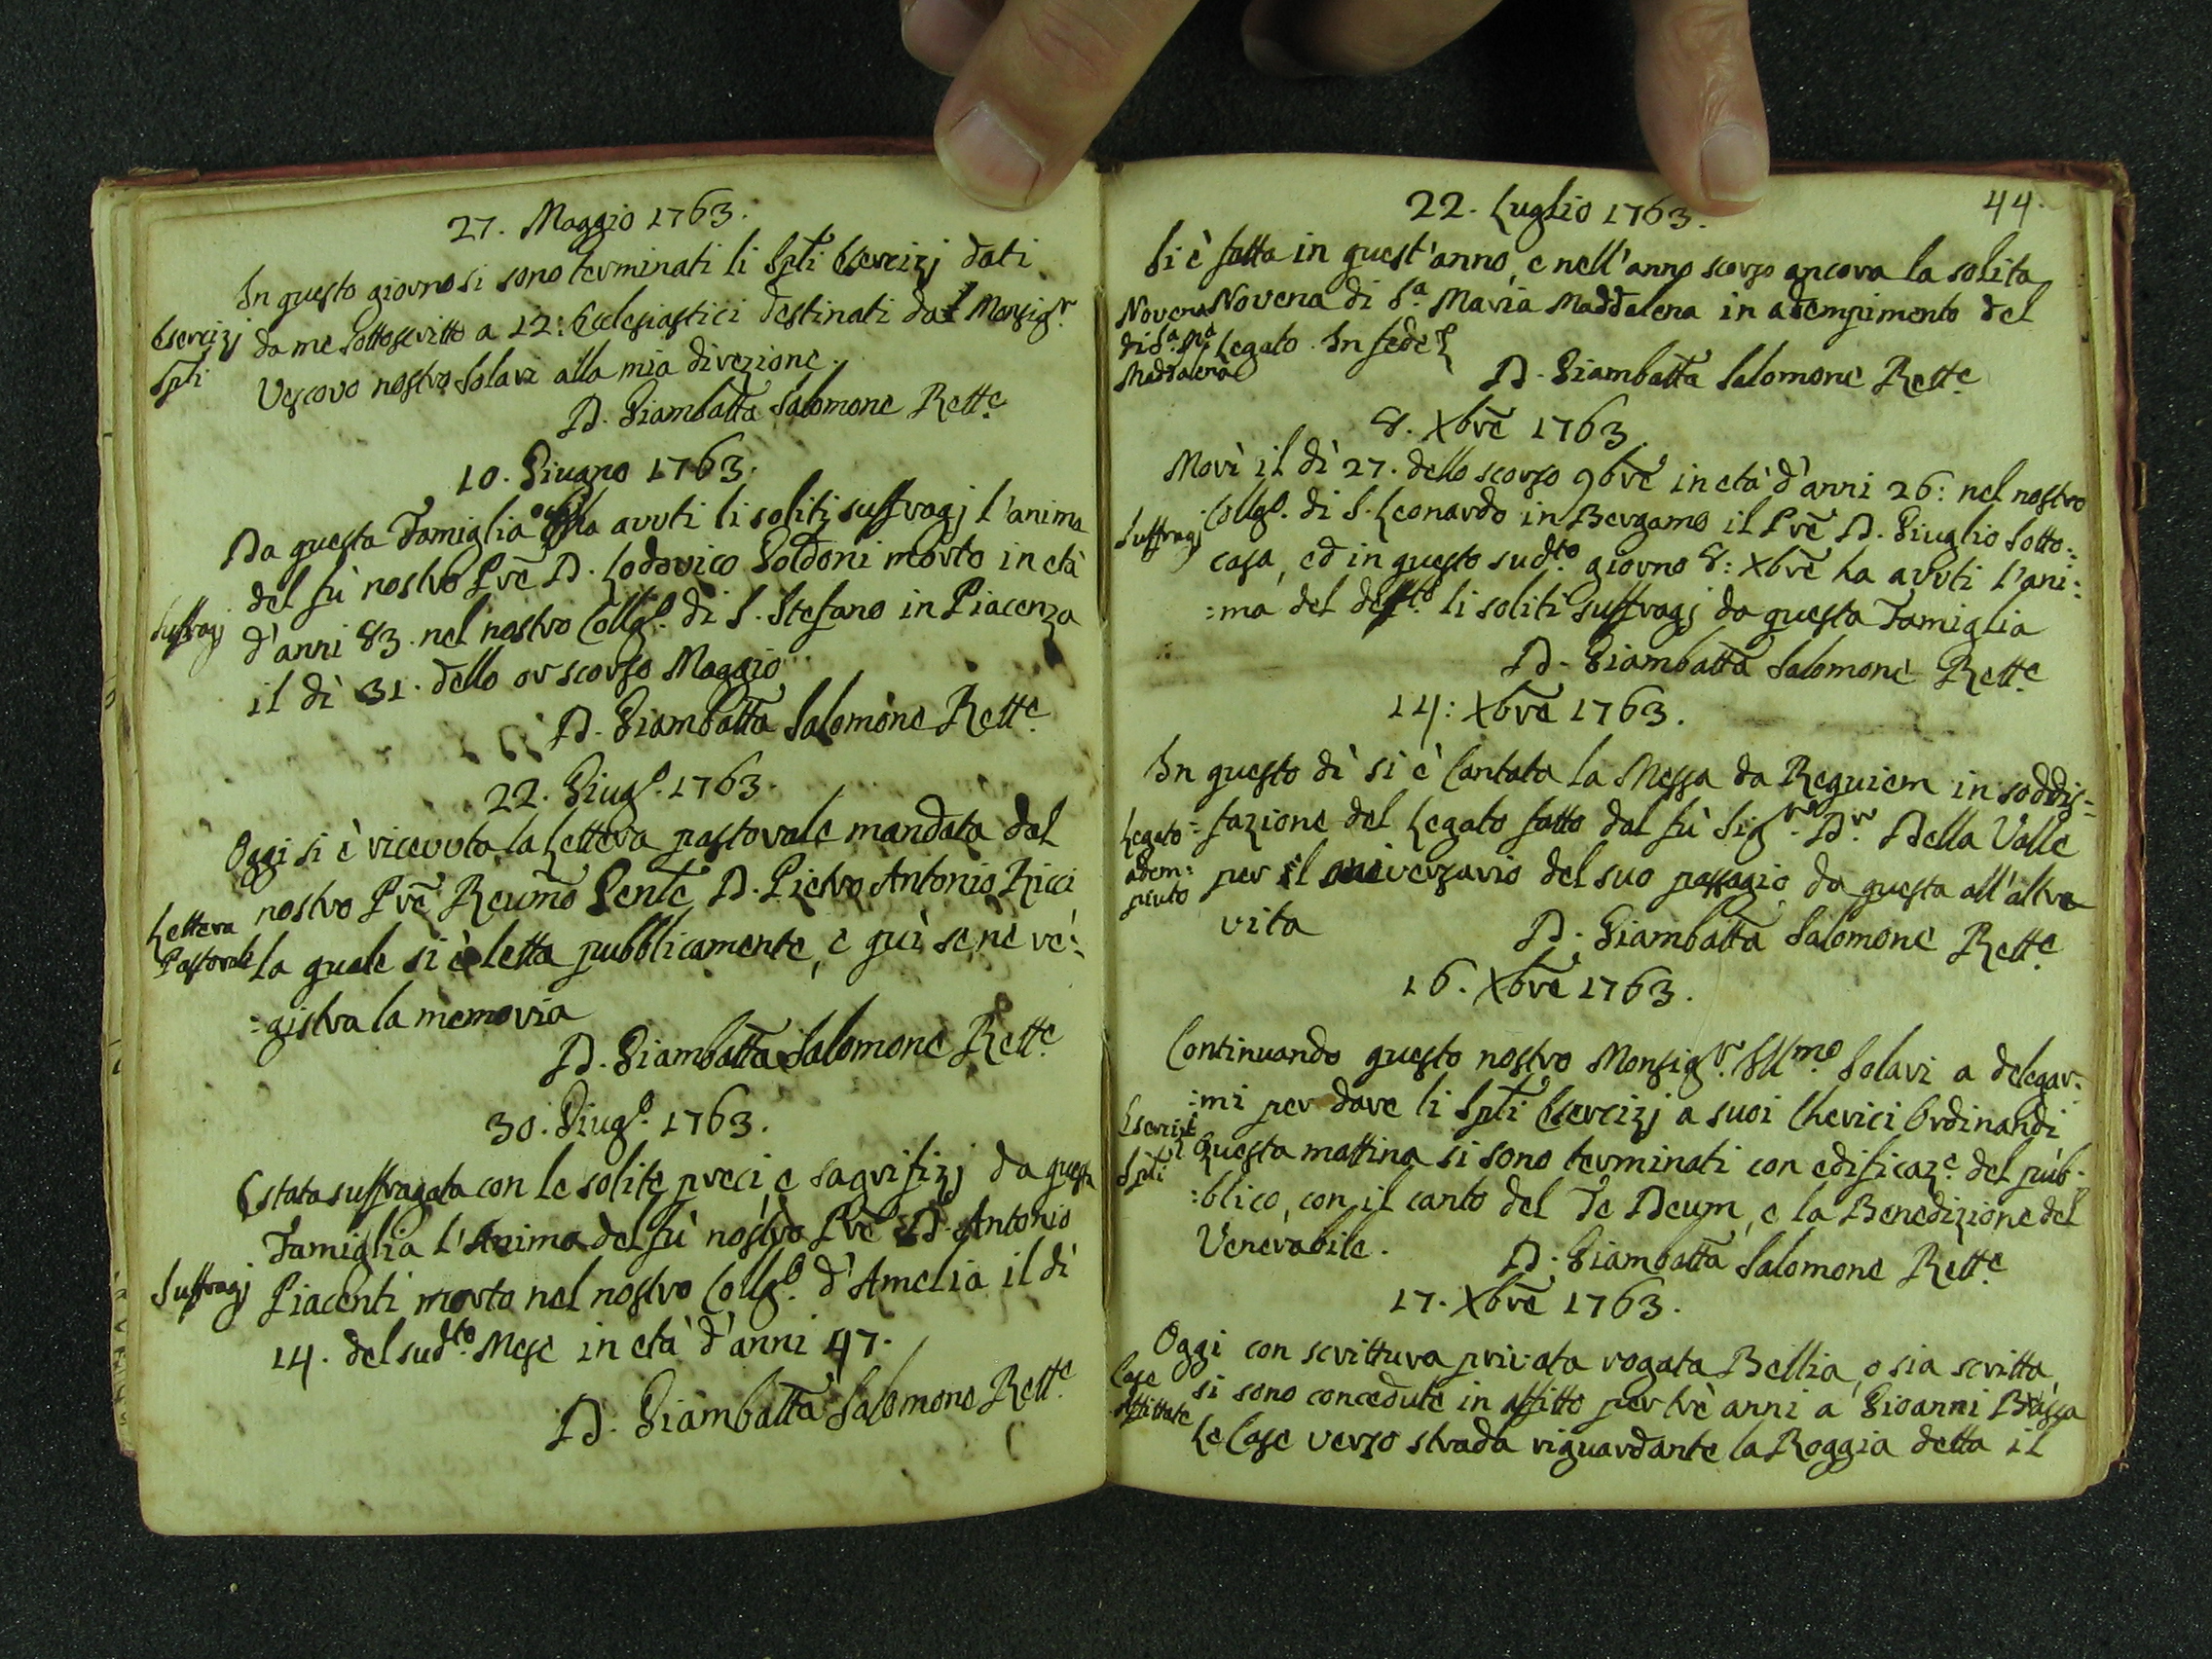 27. Maggio 1763.
In questo giorno si sono terminati li Spli Esercizj dati
Esercizj
Spli
da me sottoscritto a 12: Ecclesiastici destinati dal Monsig.r
Vescovo nostro Solari alla mia direzione.
D. Giambatta Salomone Rett.e
10. Giugno 1763.
Da questa Famiglia ha avuti li soliti suffragj l'anima
del fù nostro Pre D. Lodovico Soldoni morto in età
Suffragj
d'anni 83. nel nostro Collg.o di S. Stefano in Piacenza
il dì 31. dello or scorso Maggio
D. Giambatta Salomone Rett.e
22. Giug.o 1763.
Oggi si è ricevuta la Lettera pastorale mandata dal
nostro Pre Reumo Gente D. Pietro Antonio Ricci
Lettera
Pastorale
la quale si è letta pubblicamente, e quì se ne re:
:gistra la memoria
D. Giambatta Salomone Rett.e
30. Giug.o 1763.
E stata suffragata con le solite preci, e sagrifizj da questa
Famiglia l'Anima del fù nostro Pre D. Antonio
Suffragj
Piacenti morto nel nostro Collg.o d'Amelia il dì
14. del sud.to Mese in età d'anni 47.
D. Giambatta Salomone Rett.e
44.
22. Luglio 1763.
Si è fatta in quest'anno, e nell'anno scorso ancora la solita
Novena
di S.a M.a
Maddalena
Novena di S.a Maria Maddalena in adempimento del
Legato. In fede
D. Giambatta Salomone Rett.e
8. Xbre 1763.
Morì il dì 27. dello scorso 9bre in età d'anni 26: nel nostro
Suffragj
Collg.o di S. Leonardo in Bergamo il Pre D. Giuglio Sotto:
casa, ed in questo sud.to giorno 8: Xbre ha avuti l'ani:
:ma del def.to li soliti suffragj da questa Famiglia
D. Giambatta Salomone Rett.e
14: Xbre 1763.
In questo dì si è Cantata la Messa da Requiem in soddis:
Legato
adem:
piuto
:fazione del Legato fatto dal fù Sig.r D.r Della Valle
per il aniversario del suo passagio da questa all'altra
vita
D. Giambatta Salomone Rett.e
16. Xbre 1763.
Continuando questo nostro Monsig.r Ill.mo Solari a delegar:
:mi per dare li Spli Esercizj a suoi Cherici Ordinandi
Esercizj
Spli
Questa mattina si sono terminati con edificaz.e del pub:
:blico, con il canto del Te Deum, e la Benedizione del
Venerabile.
D. Giambatta Salomone Rett.e
17. Xbre 1763.
Oggi con scrittura privata rogata Bellia, o sia scritta,
Case
Affittate
si sono concedute in affitto per trè anni a Gioanni
Le Case verso strada riguardante la Roggia detta il